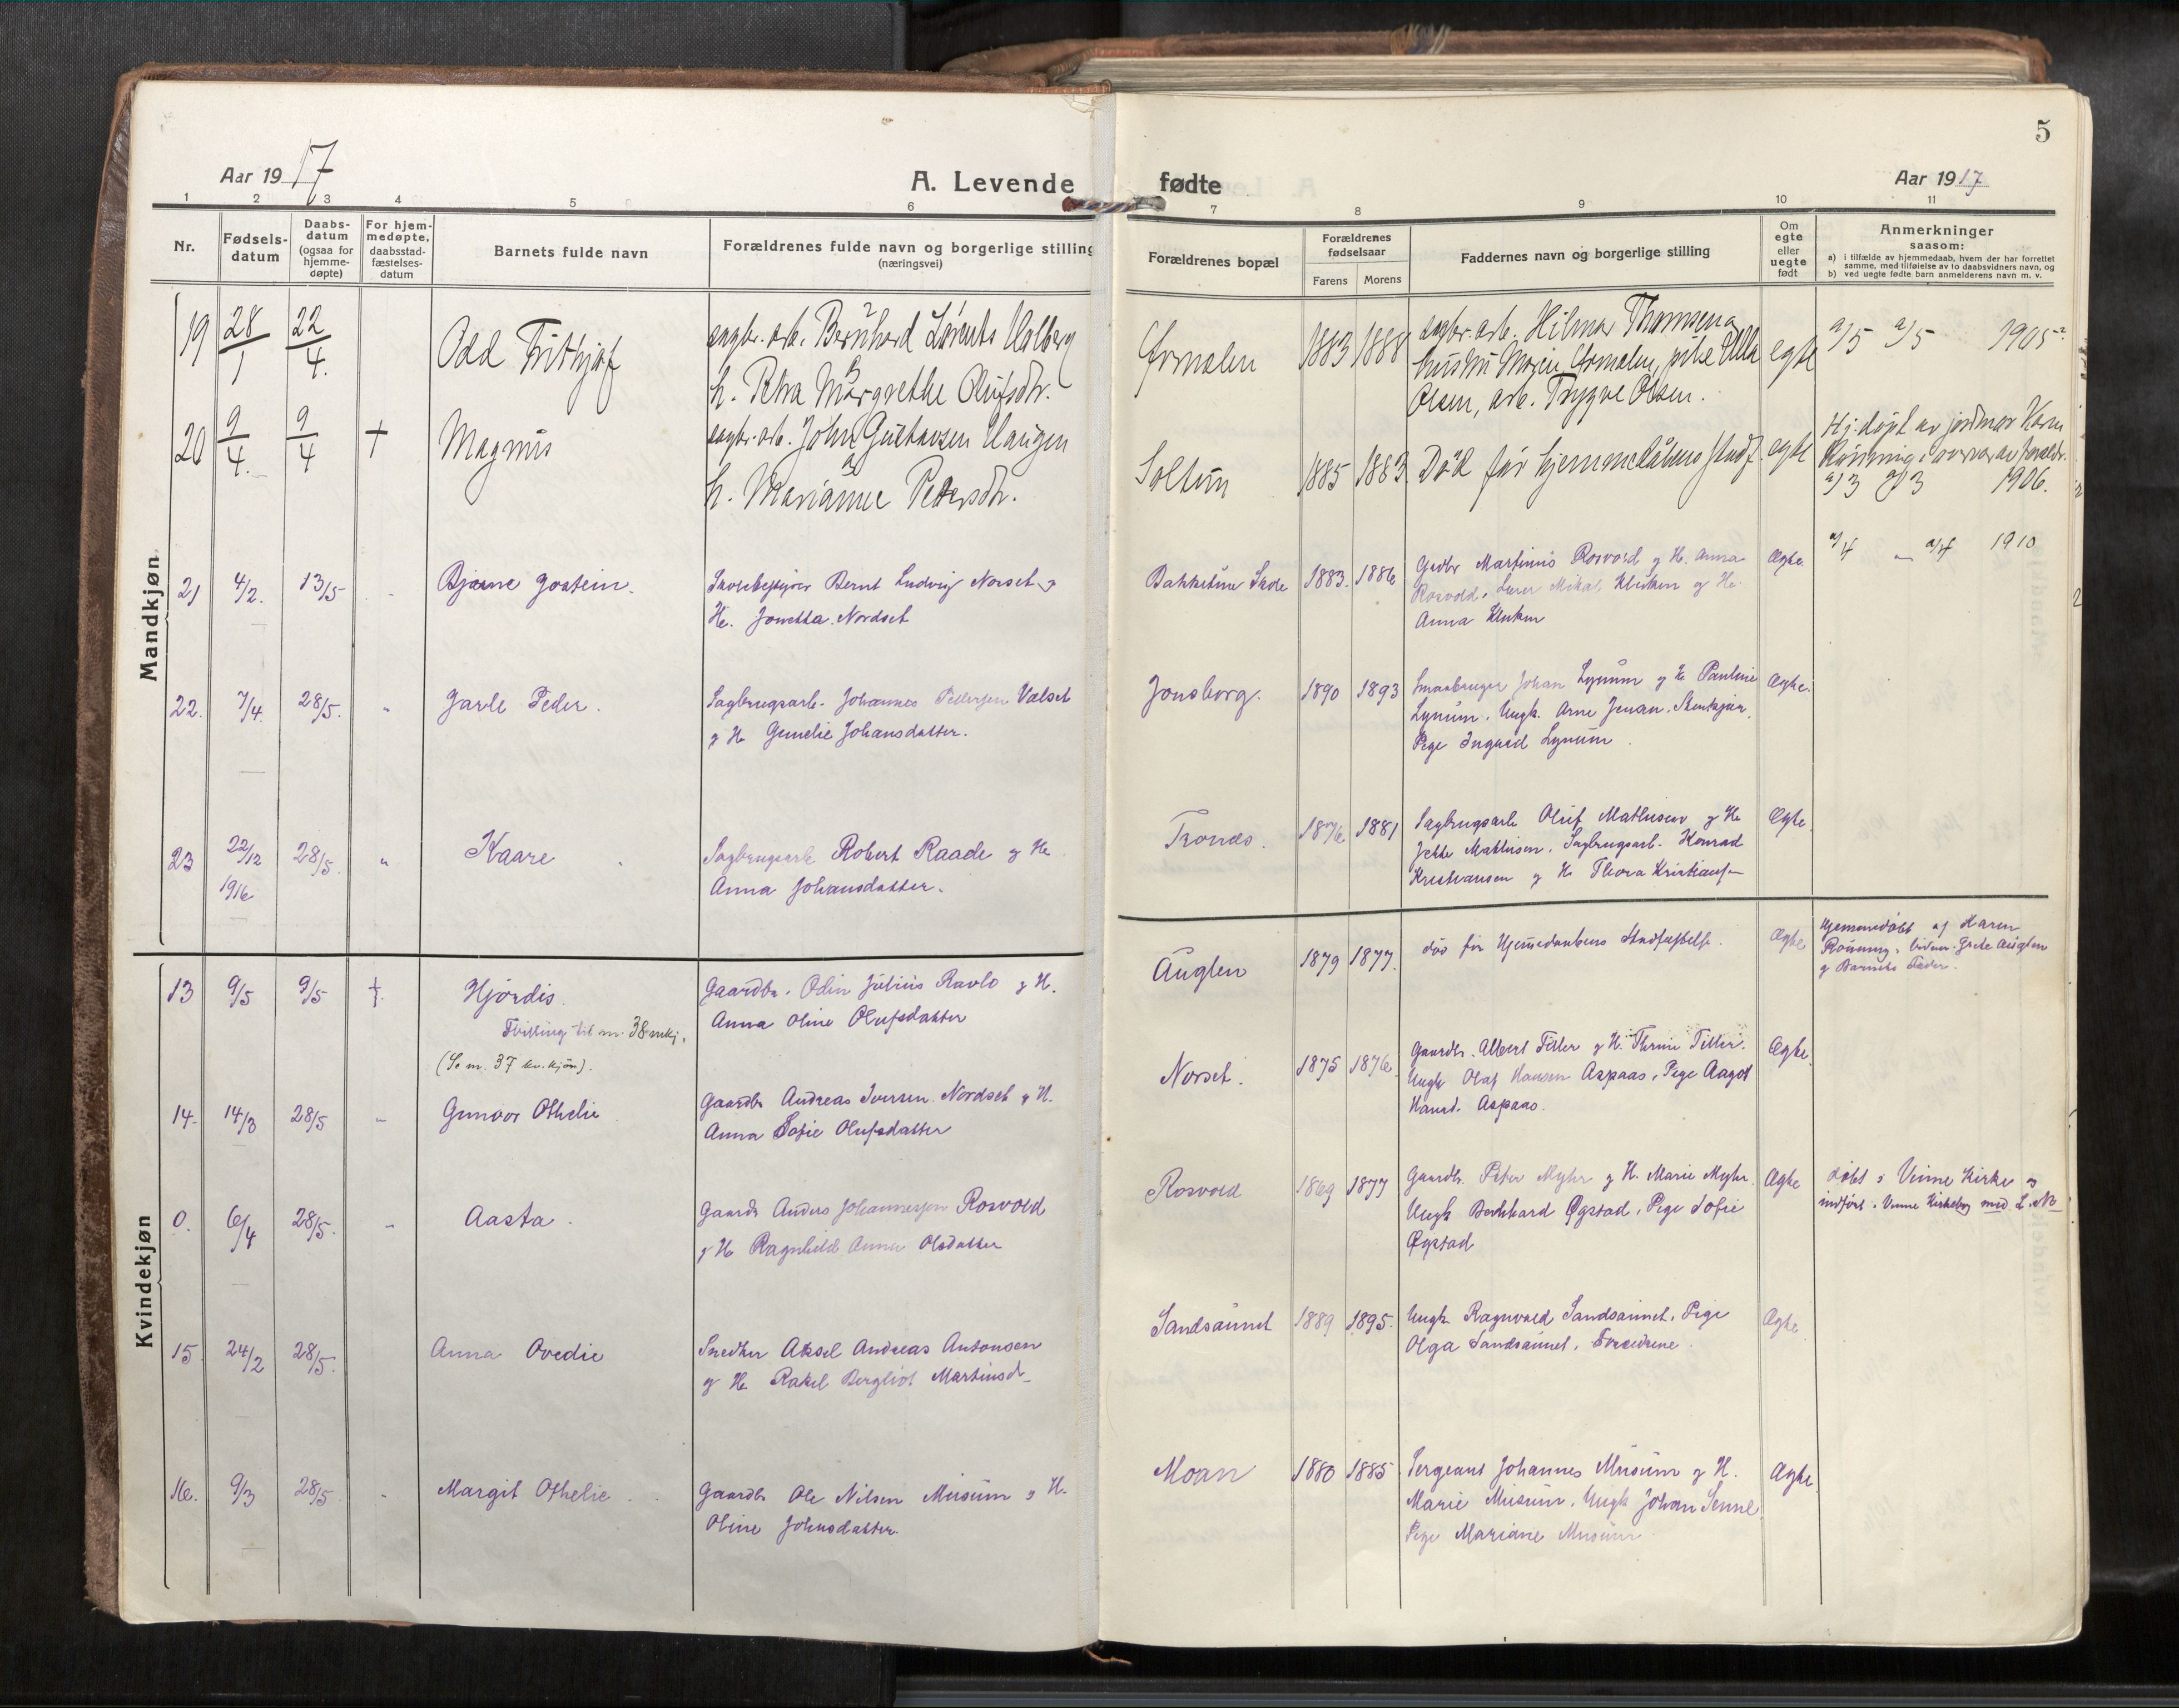 5
Aar 1917
A. Levende
fødte
Aar 1917
1 2 3 4 5 6 7 8 9 10 11
Nr.
Fødsels-
datum
Daabs-
datum
(ogsaa for
hjemme-
døpte)
For hjem-
medøpte,
daabsstad-
fæstelses-
datum
Barnets fulde navn
Forældrenes fulde navn og borgerlige stilling
(næringsvei)
Forældrenes bopæl
Forældrenes
fødselsaar
Farens Morens
Faddernes navn og borgerlige stilling
Om
egte
eller
uegte
født
Anmerkninger
saasom:
a) i tilfælde av hjemmedaab, hvem der har forrettet
samme, med tilføielse av to daabsvidners navn, og
b) ved uegte fødte barn anmelderens navn m. v.
Mandkjøn
19 28/1 22/4. Odd Frithjof
sagbr. arb. Bernhard Lorents Holberg
h. Margrethe Olufsdtr.
1883 1888
sagbr. arb. Hilmar Thomsen og
hustru Marie pike Ulla
Olsen, arb. Trygve Olsen.
egte
a/5 a/5 1905
20 9/4. 9/4 + Magnus
sagbr. arb. John Gustavsen Haugen
h. Marianne Pedersdtr.
Soltun 1885 1883.
Død før hjemmedåbens stadf.
egte
Hj. døpt av jordmor Karen
Rønning i overvær av foreldr.
a/3 a/3 1906.
21 4/2. 13/5 Bjarne Jostein.
Skolebestyrer Bernt Ludvig Norset og
He. Jonetta Nordset
Bakketun Skole 1883. 1886
Gaardbr Martinus Rosvold og H. Anna
Rosvold, Lærer Mikal Kluken og He.
Anna Kluken
Ægte.
a/4 - a/4 1910
22. 7/4. 28/5. " Jarle Peder.
Sagbrugsarb. Johannes Pedersen Valset
og H. Gunelie Johansdatter.
Jonsborg. 1890 1893
Smaabruger Johan Lynum og H. Pauline
Lynum. Ungk. Arne Jenan. Stenkjær,
Pige Ingrid Lynum.
Ægte.
23 22/12 1916 28/5. " Kaare
Sagbrugsarb Robert Raade og H.
Anna Johansdatter.
Tronds. 1876 1881
Sagbrugsarb Oluf Mathisen og H.
Jette Mathisen. Sagbrugsarb. Konrad
Kristiansen og H. Thora Kristiansen
Ægte.
Kvindekjøn
13 9/5 9/5 + Hjørdis.
Tvilling til nr. 38 mkj.
(Se nr. 37 kv.kjøn).
Gaardbr. Odin Julius Ravlo og H.
Anna Oline Olufsdatter
Auglen 1879 1877.
død før Hjemmedaabens Stadfæstelse.
Ægte
Hjemmedøbt af Karen
Rønning. Vidner: Grete Auglen
og Barnets Fader.
14. 14/3 28/5 Gunvor Othelie
Gaardbr Andreas Iversen Nordset og H.
Anna Sofie Olufsdatter
Norset. 1875 1876.
Gaardbr. Albert Tiller og H. Thrine Tiller.
Ungk Olaf Hansen Aspaas, Pige Aagot
Hansd. Aspaas.
Ægte.
0. 6/4 28/5. Aasta.
Gaardb Anders Johannessen Rosvold
og H. Ragnhild Anna Olsdatter
Rosvold 1869 1877
Gaardb. Peter Myhr og H. Marie Myhr.
Ungk Bernhard Øgstad, Pige Sofie
Øgstad
Ægte
døbt i Vinne Kirke og
indført i Vinne Kirkebog med L. Nr
15. 24/2 28/5. Anna Ovedie
Snedker Aksel Andreas Antonsen
og H. Rakel Bergliot Martinsd.
Sandsaunet 1889 1895.
Ungk. Ragnvald Sandsaunet, Pige
Olga Sandsaunet, Forældrene.
Ægte
16. 9/3 28/5. Margit Othelie.
Gaardb. Ole Nilsen Musum og H.
Oline Johnsdatter.
Moan 1880 1885
Sergeant Johannes Musum og H.
Marie Musum. Ungk Johan Senne
Pige Mariane Musum
Ægte.